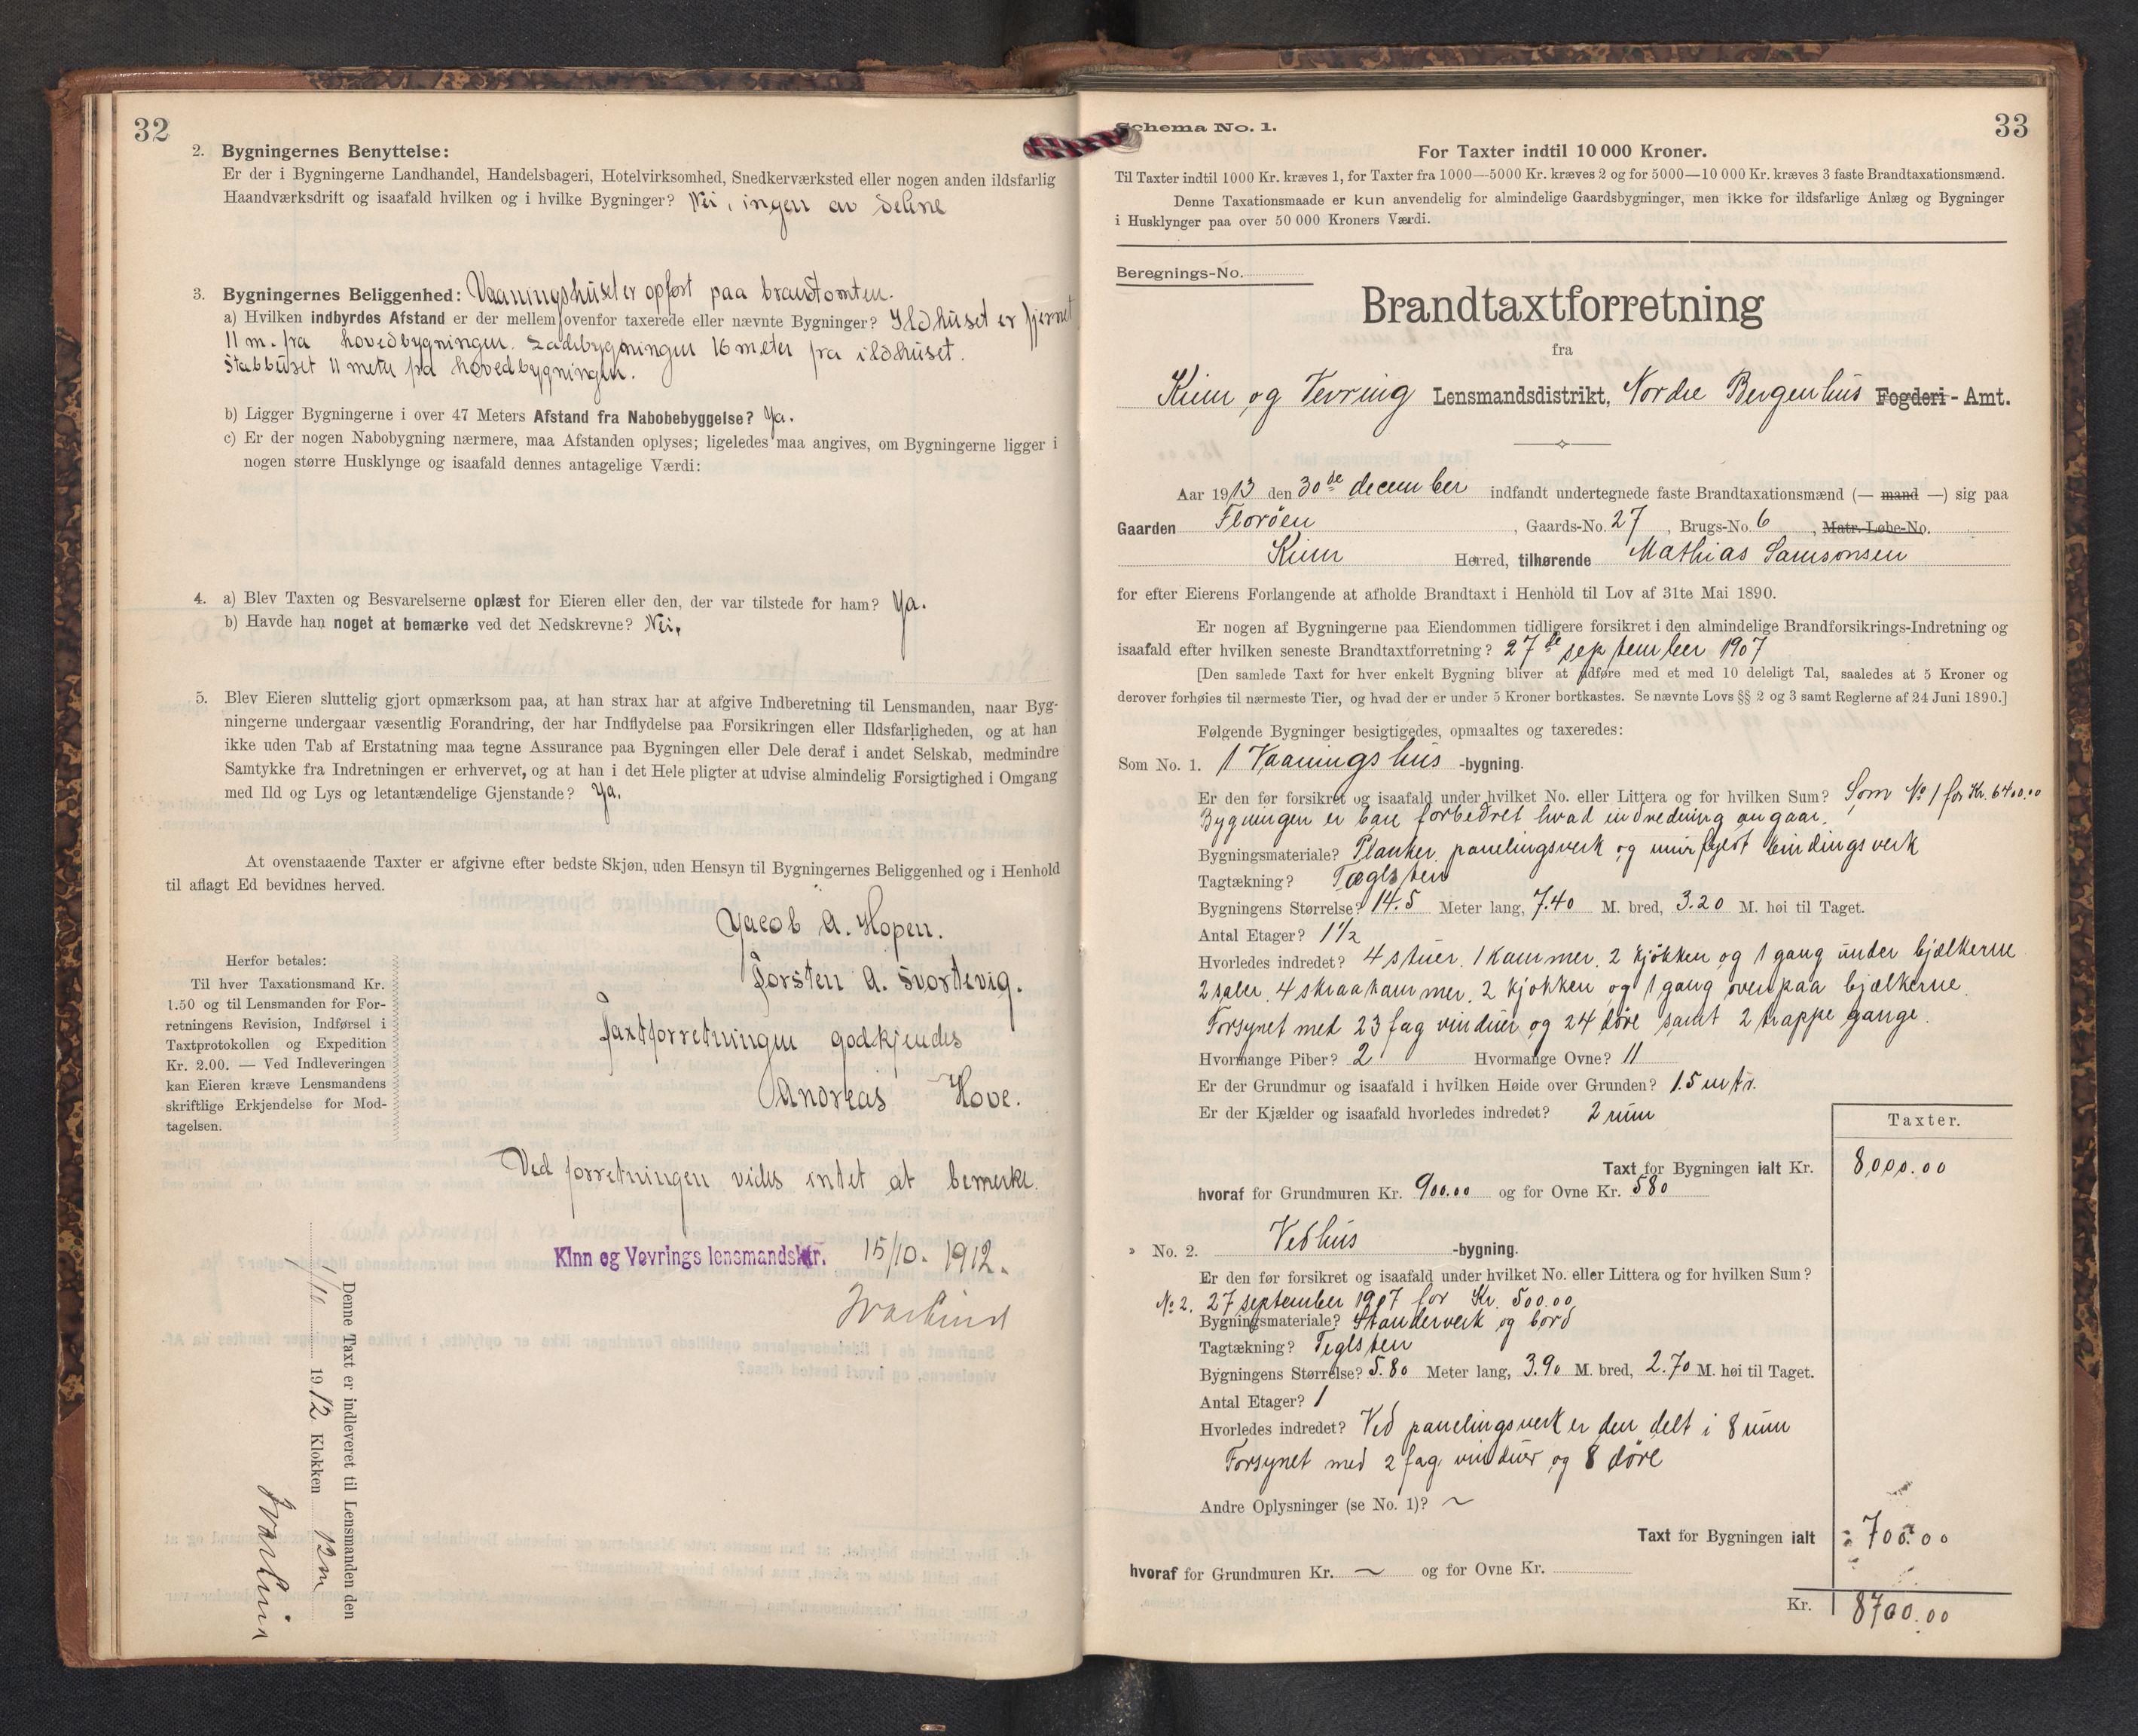 32
2. Bygningernes Benyttelse:
Er der i Bygningerne Landhandel, Handelsbageri, Hotelvirksomhed, Snedkerværksted eller nogen anden ildsfarlig
Haandværksdrift og isaafald hvilken og i hvilke Bygninger? Nei, ingen av delene
3. Bygningernes Beliggenhed: Vaaningshuset er opført paa brandtomten.
a) Hvilken indbyrdes Afstand er der mellem ovenfor taxerede eller nævnte Bygninger? Ildhuset er fjernet
11 m. fra hovedbygningen. Ladebygningen 16 meter fra ildhuset.
Stabburet 11 meter fra hovedbygningen.
b) Ligger Bygningerne i over 47 Meters Afstand fra Nabobebyggelse? Ja.
c) Er der nogen Nabobygning nærmere, maa Afstanden oplyses; ligeledes maa angives, om Bygningerne ligger i
nogen større Husklynge og isaafald dennes antagelige Værdi:
4. a) Blev Taxten og Besvarelserne oplæst for Eieren eller den, der var tilstede for ham? Ja.
b) Havde han noget at bemærke ved det Nedskrevne? Nei.
5. Blev Eieren sluttelig gjort opmærksom paa, at han strax har at afgive Indberetning til Lensmanden, naar Byg-
ningerne undergaar væsentlig Forandring, der har Indflydelse paa Forsikringen eller Ildsfarligheden, og at han
ikke uden Tab af Erstatning maa tegne Assurance paa Bygningen eller Dele deraf i andet Selskab, medmindre
Samtykke fra Indretningen er erhvervet, og at han i det Hele pligter at udvise almindelig Forsigtighed i Omgang
med Ild og Lys og letantændelige Gjenstande? Ja.
At ovenstaaende Taxter er afgivne efter bedste Skjøn, uden Hensyn til Bygningernes Beliggenhed og i Henhold
til aflagt Ed bevidnes herved.
Jacob A. Hopen.
Torsten A. Svortevig.
Taxtforretningen godkjendes
Andreas Hove.
Herfor betales:
Til hver Taxationsmand Kr.
1.50 og til Lensmanden for For-
retningens Revision, Indførsel i
Taxtprotokollen og Expedition
Kr. 2.00. — Ved Indleveringen
kan Eieren kræve Lensmandens
skriftlige Erkjendelse for Mod-
tagelsen.
Ved forretningen vides intet at bemerke.
Kinn og Vevrings lensmandsktr. 15/10. 1912.
Denne Taxt er indleveret til Lensmanden den
1912 Klokken 12 m
33
Schema No. 1.
For Taxter indtil 10 000 Kroner.
Til Taxter indtil 1000 Kr. kræves 1, for Taxter fra 1000—5000 Kr. kræves 2 og for 5000—10 000 Kr. kræves 3 faste Brandtaxationsmænd.
Denne Taxationsmaade er kun anvendelig for almindelige Gaardsbygninger, men ikke for ildsfarlige Anlæg og Bygninger
i Husklynger paa over 50 000 Kroners Værdi.
Beregnings-No.
Brandtaxtforretning
fra
Kinn og Vevring Lensmandsdistrikt, Nordre Bergenhus Fogderi - Amt.
Aar 1913 den 30de december indfandt undertegnede faste Brandtaxationsmænd (— mand —) sig paa
Gaarden Florøen, Gaards-No. 27, Brugs-No. 6, Matr. Løbe-No.
Kinn Herred, tilhørende Mathias Samsonsen
for efter Eierens Forlangende at afholde Brandtaxt i Henhold til Lov af 31te Mai 1890.
Er nogen af Bygningerne paa Eiendommen tidligere forsikret i den almindelige Brandforsikrings-Indretning og
isaafald efter hvilken seneste Brandtaxtforretning? 27de september 1907
[Den samlede Taxt for hver enkelt Bygning bliver at udføre med et med 10 deleligt Tal, saaledes at 5 Kroner og
derover forhøies til nærmeste Tier, og hvad der er under 5 Kroner bortkastes. Se nævnte Lovs §§ 2 og 3 samt Reglerne af 24 Juni 1890.]
Følgende Bygninger besigtigedes, opmaaltes og taxeredes:
Som No. 1. 1 Vaaningshus -bygning.
Er den før forsikret og isaafald under hvilket No. eller Littera og for hvilken Sum? Som No 1 for Kr. 6400.00
Bygningen er bare forbedret hvad indredning angaar.
Bygningsmateriale? Planker, panelingsverk og murfyldt bindingsverk
Tagtækning? Tæglsten
Bygningens Størrelse? 14.5 Meter lang, 7.40 M. bred, 3.20 M. høi til Taget.
Antal Etager? 1½
Hvorledes indredet? 4 stuer, 1 kammer, 2 kjøkken og 1 gang under bjælkerne
2 saler, 4 skraakammer, 2 kjøkken og 1 gang ovenpaa bjælkerne.
Forsynet med 23 fag vinduer og 24 døre samt 2 trappe gange.
Hvormange Piber? 2 Hvormange Ovne? 11
Er der Grundmur og isaafald i hvilken Høide over Grunden? 1.5 mtr.
Er der Kjælder og isaafald hvorledes indredet? 2 rum
Taxter.
Taxt for Bygningen ialt Kr. 8000.00
hvoraf for Grundmuren Kr. 900.00 og for Ovne Kr. 580
» No. 2. Vedhus -bygning.
Er den før forsikret og isaafald under hvilket No. eller Littera og for hvilken Sum?
No 2. 27 september 1907 for Kr. 500.00
Bygningsmateriale? Standerverk og bord
Tagtækning? Teglsten
Bygningens Størrelse? 5.80 Meter lang, 3.90 M. bred, 2.70 M. høi til Taget.
Antal Etager? 1
Hvorledes indredet? Ved panelingsverk er den delt i 8 rum
Forsynet med 2 fag vinduer og 8 døre
Andre Oplysninger (se No. 1)? ~
Taxt for Bygningen ialt 700.00
hvoraf for Grundmuren Kr. ~ og for Ovne Kr.
Kr. 8700.00